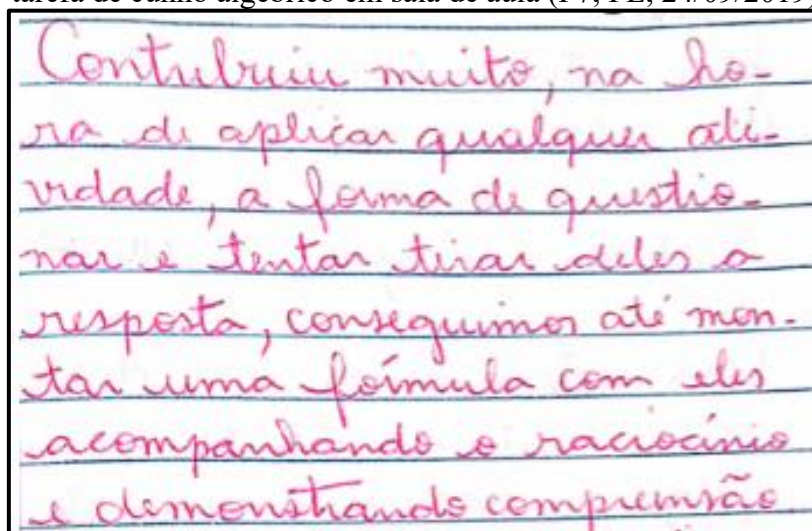 tarefa de cunho algébrico em sala de aula (P7, PE, 24/09/2019)
Contribuiu muito, na ho-
ra de aplicar qualquer ati-
vidade, a forma de questio-
nar e tentar tirar deles a
resposta, conseguimos até mon-
tar uma fórmula com eles
acompanhando o raciocínio
e demonstrando compreensão